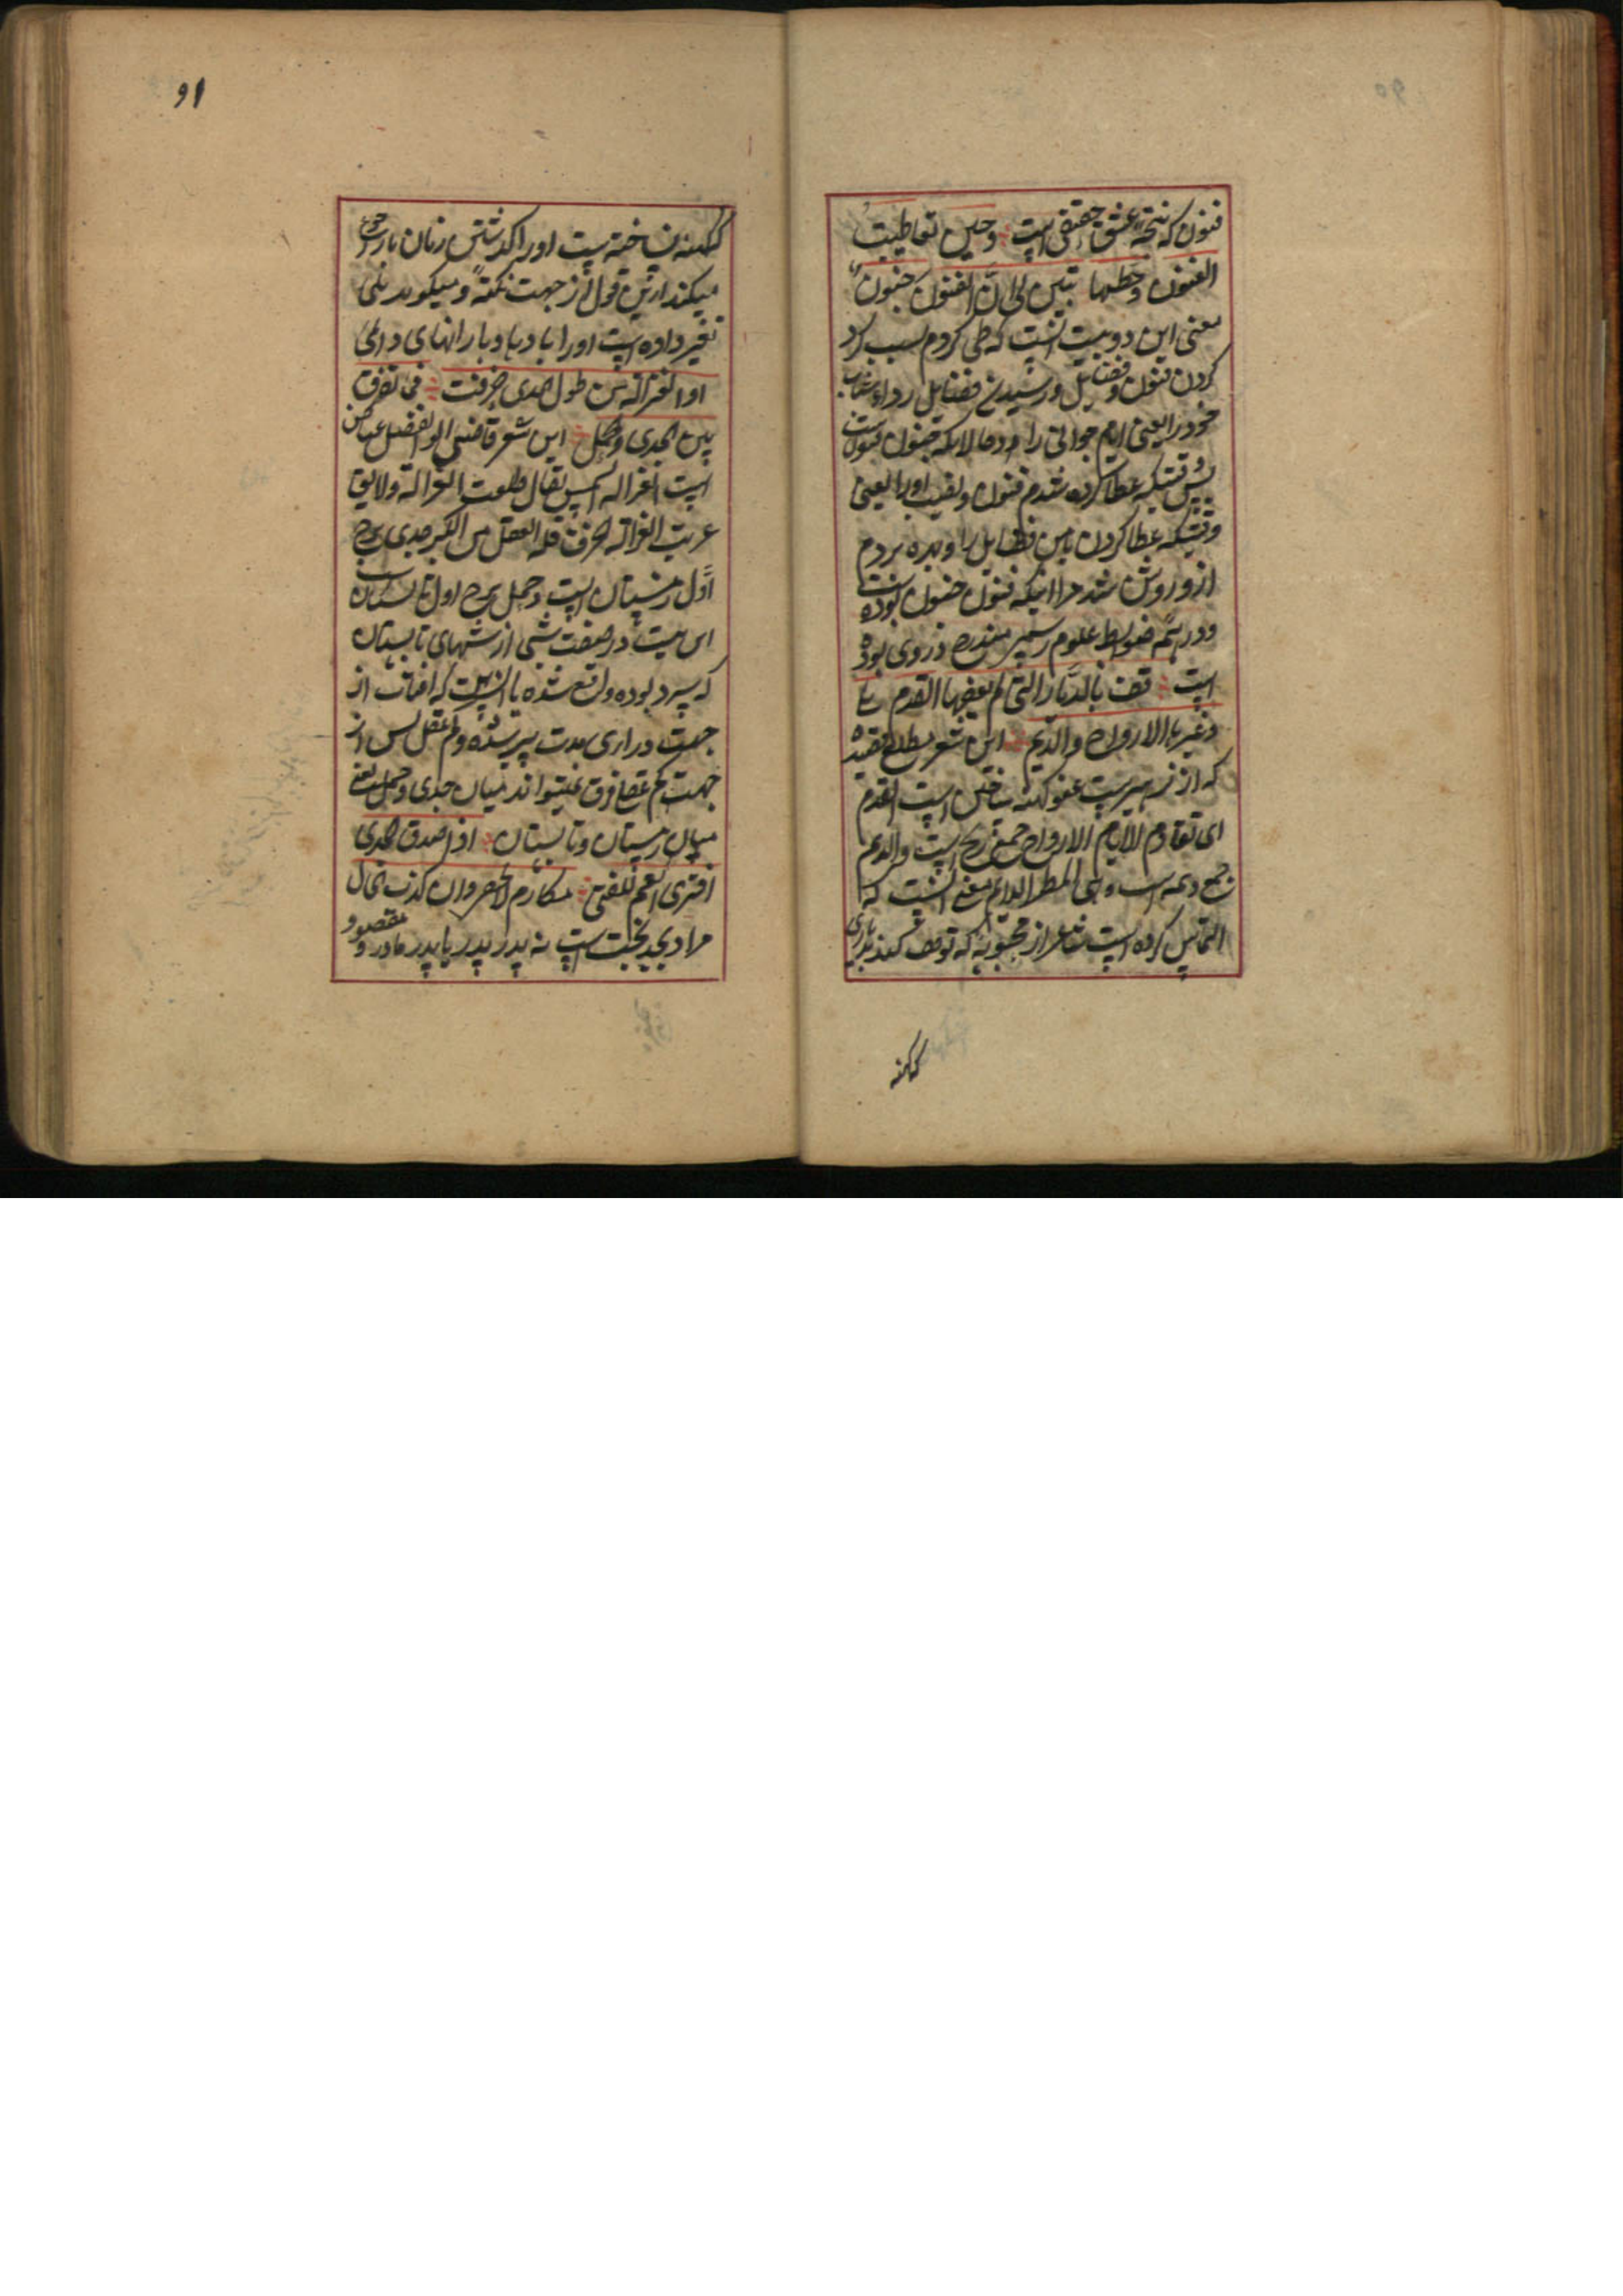 فنون که نتیجه عشق حقیقی است وحین تعاطیت
الفنون وحظها تبین لی ان الفنون جنون
معنی این دو بیت آنست که طی کردم بسبب
کردن فنون و فضایل و رسیدن فضایل رداء شباب
خود را یعنی ایام جوانی را
پس وقتیکه عطا کرده شدم فنون و نصیب اورا یعنی
وقتیکه عطا کردن بمن فضایل را و بهره بردم
ازو روشن شد مرا اینکه فنون جنون بوده است
و در ضوابط علوم مندرج در وی بوده
است قف بالدیار التی لم یعفها القدم بلی
وغیرها الارواح والدیم این شعر مطلع قصیده
که از زهیر است عفو کهنه ساختن است القدم
ای تقادم الایام الارواح جمع ریح است والدیم
جمع دیمه است وهی المطر الدایم معنی آنست که
التماس کرده است شاعر از محبوبه که توقف کند
کهنه
91
کهنه ساخته است اورا گذشتن زمان باز رجوع
میکند ازین قول از جهت نکته و میگوید بلی
تغیر داده است اورا بادها و بارانهای دایمی
او الغزاله من طول المدی خرفت فما تفرق
بین الجدی والحمل این شعر قاضی ابوالفضل عیاض
است الغزاله الشمس یقال طلعت الغزاله ولا یق
غربت الغزاله الخرف قلة العقل من الکبر جدی برج
اول زمستان است و حمل برج اول تابستان
این بیت در صفت شبی از شبهای تابستان
که سرد بوده واقع شده یا آنست که افتاب از
جهت درازی مدت پیر شده و کم عقل پس از
جهت کم عقلی فرق نمیتواند میان جدی و حمل یعنی
میان زمستان و تابستان اذا صدق الجد
افتری العم للفتی مکارم لا تخفی وان کذب الخال
مراد بجد بخت است نه پدر پدر یا پدر مادر و مقصود